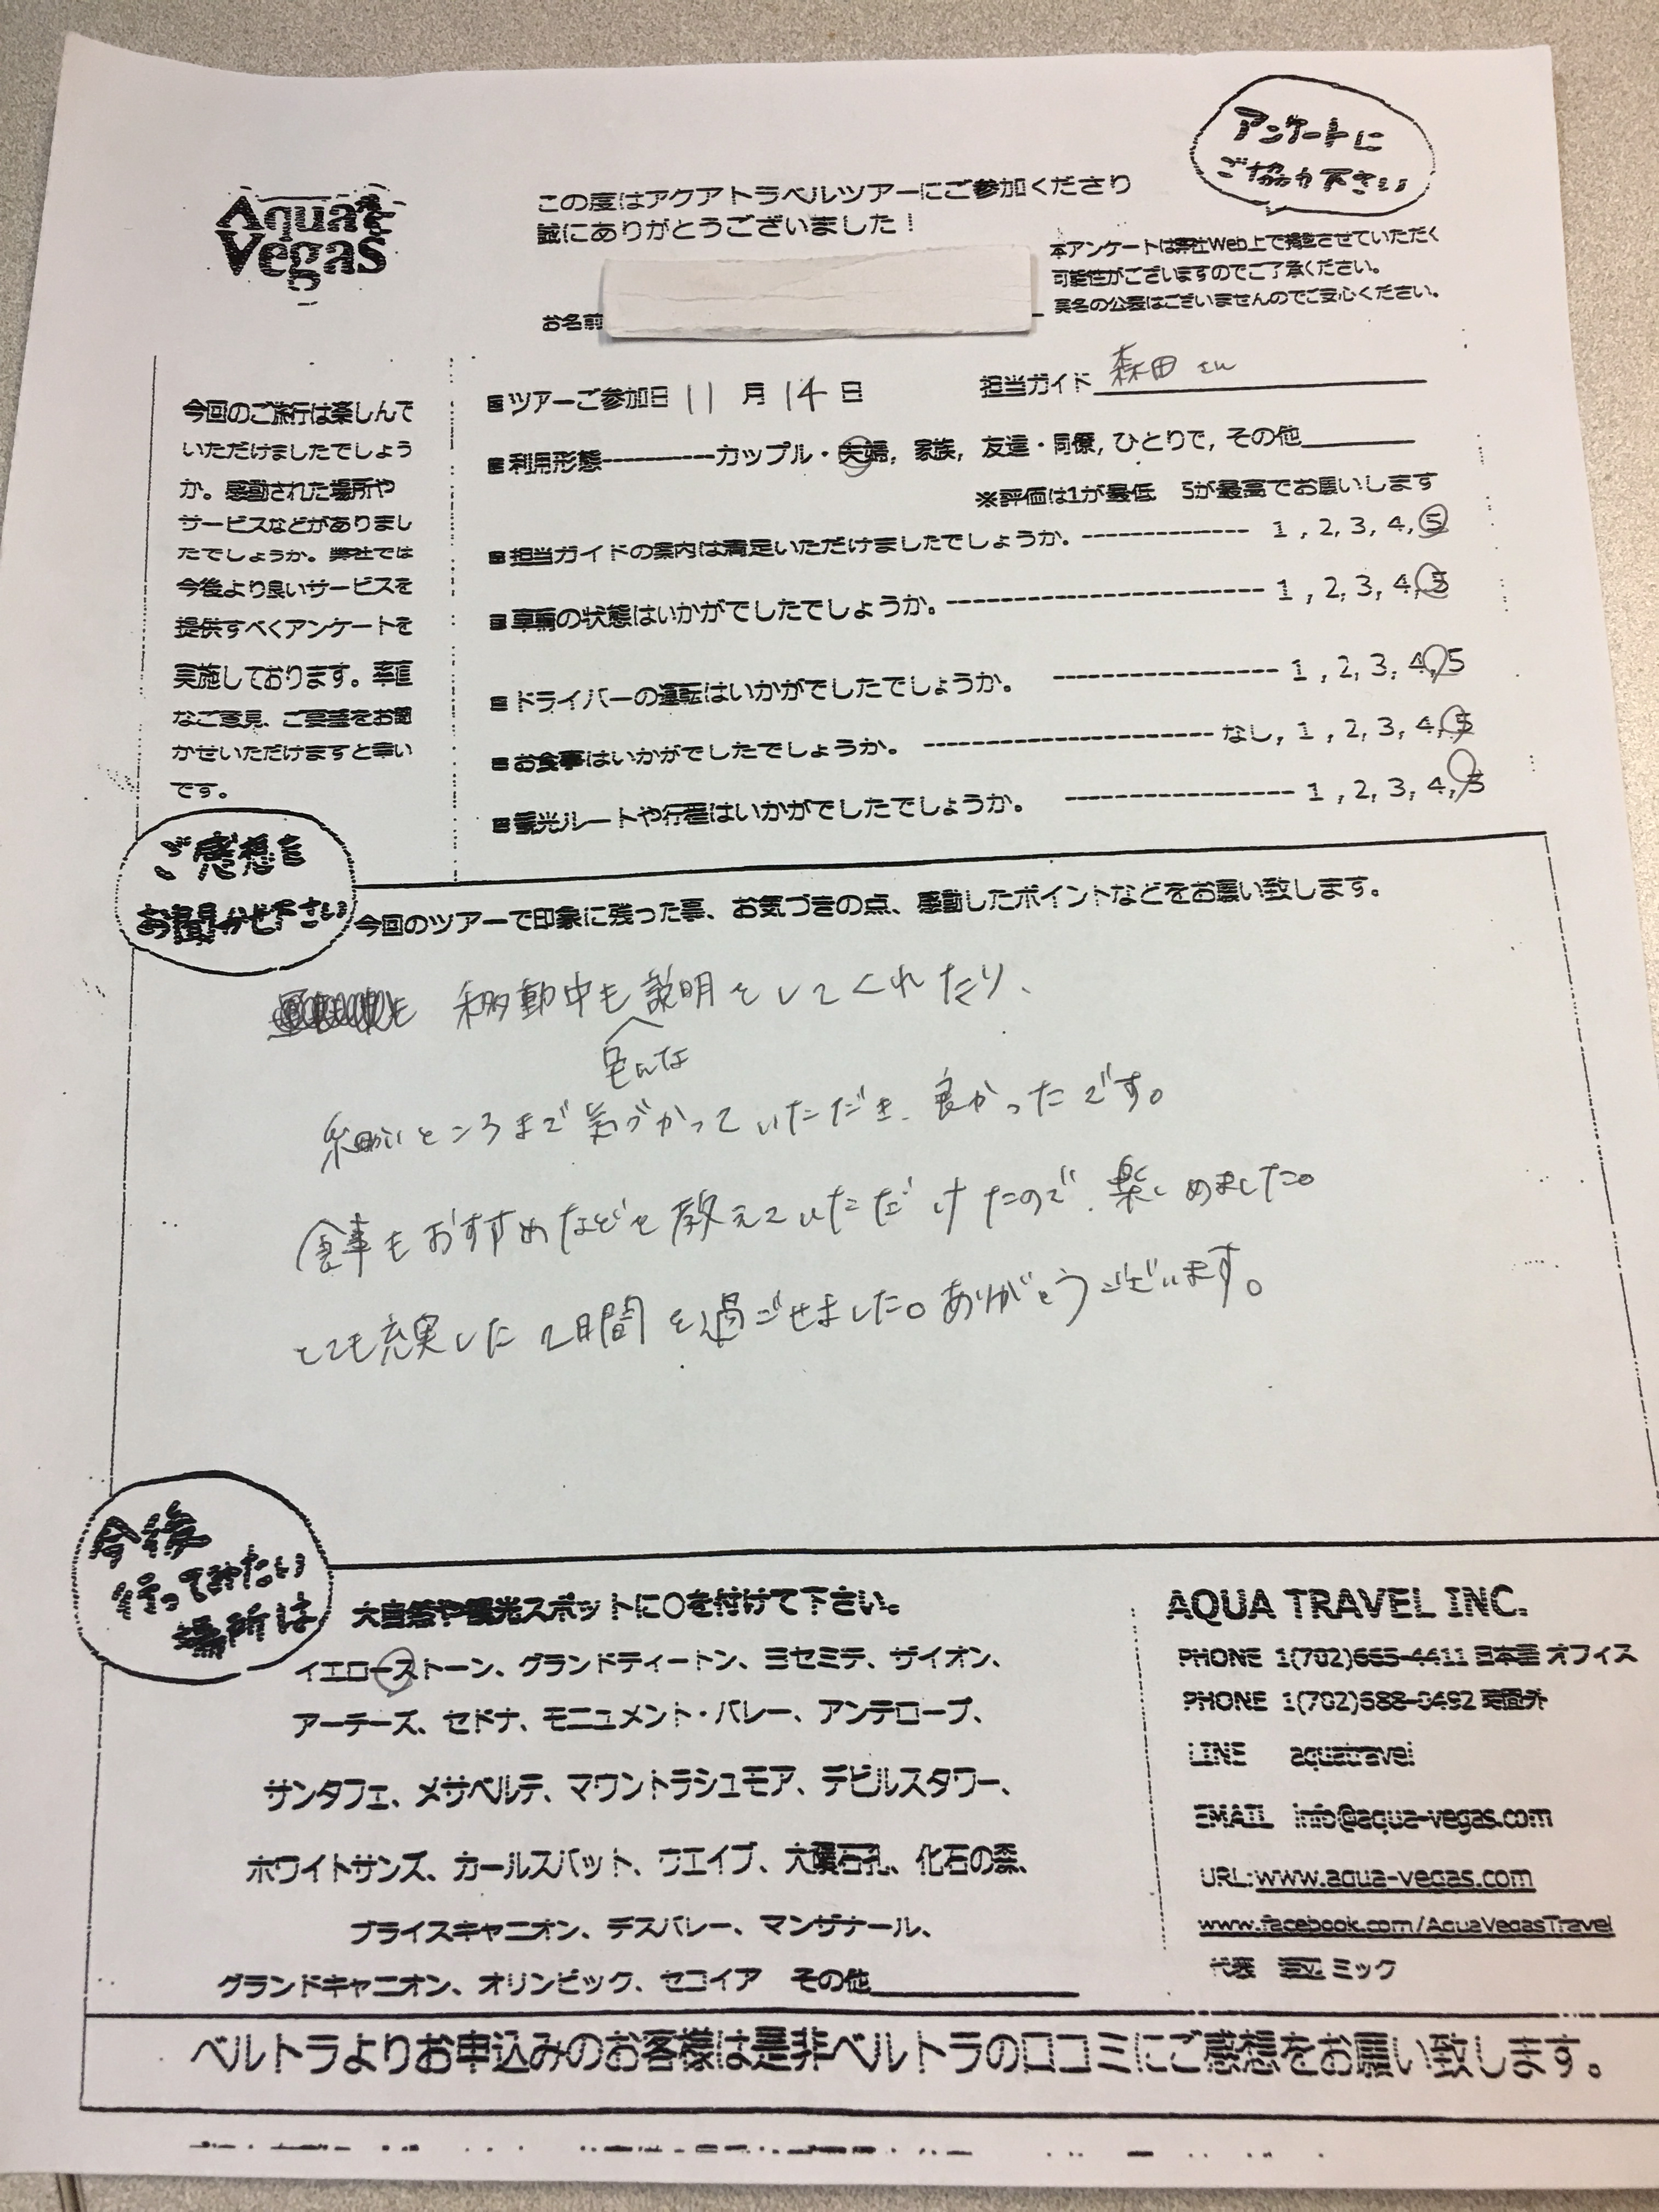 アンケートに
ご協力下さい
Aqua
Vegas
この度はアクアトラベルツアーにご参加くださり
誠にありがとうございました！
本アンケートは弊社Web上で掲載させていただく
可能性がございますのでご了承ください。
実名の公表はございませんのでご安心ください。
お名前
今回のご旅行は楽しんで
いただけましたでしょう
か。感動された場所や
サービスなどがありまし
たでしょうか。弊社では
今後より良いサービスを
提供すべくアンケートを
実施しております。率直
なご意見、ご要望をお聞
かせいただけますと幸い
です。
■ツアーご参加日 11 月 14 日 担当ガイド 森田さん
■利用形態----------カップル・夫婦, 家族, 友達・同僚, ひとりで, その他
※評価は1が最低 5が最高でお願いします
■担当ガイドの案内は満足いただけましたでしょうか。--------------- 1 , 2, 3, 4, 5
■車輌の状態はいかがでしたでしょうか。---------------------------- 1 , 2, 3, 4, 5
■ドライバーの運転はいかがでしたでしょうか。 -------------------- 1 , 2, 3, 4, 5
■お食事はいかがでしたでしょうか。 ------------------------- なし, 1 , 2, 3, 4, 5
■観光ルートや行程はいかがでしたでしょうか。 ------------------- 1 , 2, 3, 4, 5
ご感想を
お聞かせ下さい
今回のツアーで印象に残った事、お気づきの点、感動したポイントなどをお願い致します。
移動中も説明をしてくれたり、
色んな
細かいところまで気づかっていただき、良かったです。
食事もおすすめなどを教えていただけたので、楽しめました。
とても充実した2日間を過ごせました。ありがとうございます。
今後
行ってみたい
場所は
大自然や観光スポットに○を付けて下さい。
イエローストーン、グランドティートン、ヨセミテ、ザイオン、
アーチーズ、セドナ、モニュメント・バレー、アンテロープ、
サンタフェ、メサベルデ、マウントラシュモア、デビルスタワー、
ホワイトサンズ、カールスバット、ウエイブ、大隕石孔、化石の森、
ブライスキャニオン、デスバレー、マンザナール、
グランドキャニオン、オリンピック、セコイア その他
AQUA TRAVEL INC.
PHONE 1(702)665-4411 日本語 オフィス
PHONE 1(702)588-0492 時間外
LINE aquatravel
EMAIL info@aqua-vegas.com
URL:www.aqua-vegas.com
www.facebook.com/AquaVegasTravel
代表 ミック
ベルトラよりお申込みのお客様は是非ベルトラの口コミにご感想をお願い致します。